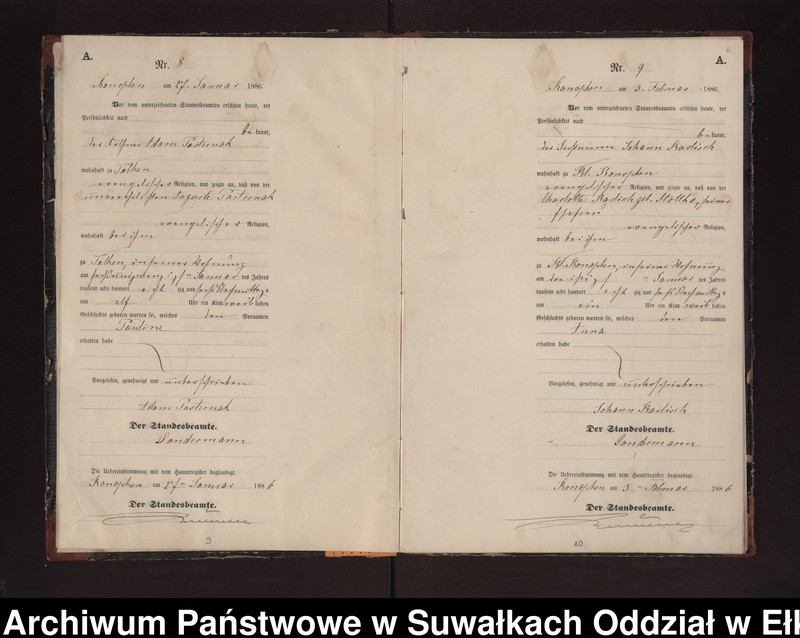 A.
Nr. 8
Konopken am 27. Januar 1886.
Vor dem unterzeichneten Standesbeamten erschien heute, der
Persönlichkeit nach
be kannt,
Adam Pasternak
wohnhaft zu Talken
evangelischer Religion, und zeigte an, daß von der
unverehelichten Auguste Pasternak
evangelischer Religion,
wohnhaft bei ihm
zu Talken, in seiner Wohnung
am Januar des Jahres
tausend acht hundert acht zig und sechs Nachmittags
um elf Uhr ein Kind weib lichen
Geschlechts geboren worden sei, welches den Vornamen
Pauline
erhalten habe
Vorgelesen, genehmigt und unterschrieben
Adam Pasternak
Der Standesbeamte.
Dondermann
Die Uebereinstimmung mit dem Hauptregister beglaubigt.
Konopken am 27ten Januar 1886
Der Standesbeamte.
9
A.
Nr. 9
Konopken am 3. Februar 1886.
Vor dem unterzeichneten Standesbeamten erschien heute, der
Persönlichkeit nach
be kannt,
Johann Kadisch
wohnhaft zu Kl. Konopken
evangelischer Religion, und zeigte an, daß von der
Charlotte Kadisch geb. seiner
Ehefrau
evangelischer Religion,
wohnhaft bei ihm
zu Kl. Konopken, in seiner Wohnung
am Januar des Jahres
tausend acht hundert acht zig und sechs Nachmittags
um ein Uhr ein Kind weib lichen
Geschlechts geboren worden sei, welches den Vornamen
Anna
erhalten habe
Vorgelesen, genehmigt und unterschrieben
Johann Kadisch
Der Standesbeamte.
Dondermann
Die Uebereinstimmung mit dem Hauptregister beglaubigt.
Konopken am 3ten Februar 1886
Der Standesbeamte.
10
Archiwum Państwowe w Suwałkach Oddział w Eł